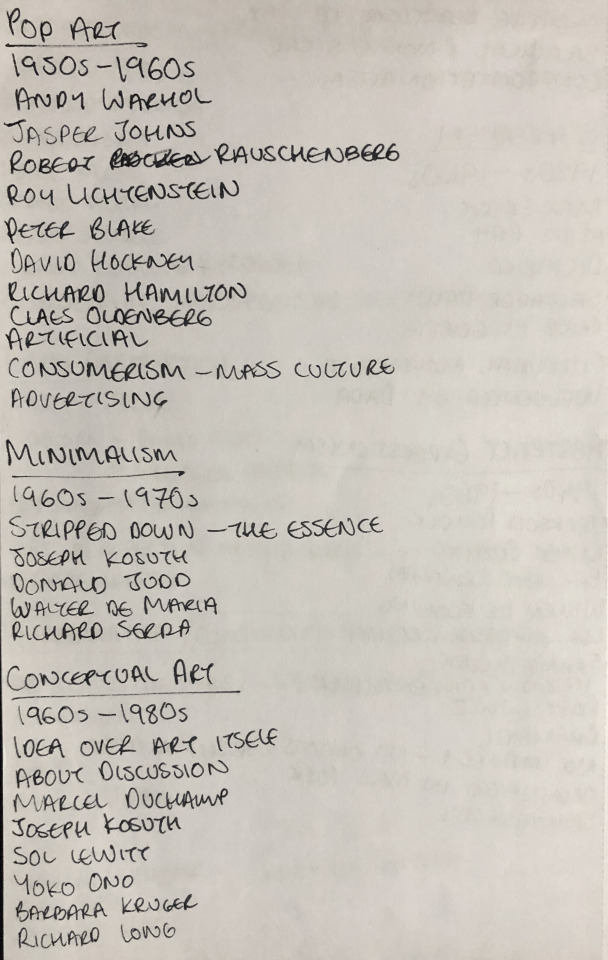 POP ART
1950s-1960s
ANDY WARHOL
JASPER JOHNS
ROBERT RAUSCHENBERG
ROY LICHTENSTEIN
PETER BLAKE
DAVID HOCKNEY
RICHARD HAMILTON
CLAES OLDENBERG
ARTIFICIAL
CONSUMERISM - MASS CULTURE
ADVERTISING
MINIMALISM
1960s-1970s
STRIPPED DOWN - THE ESSENCE
JOSEPH KOSUTH
DONALD JUDD
WALTER DE MARIA
RICHARD SERRA
CONCEPTUAL ART
1960s-1980s
IDEA OVER ART ITSELF
ABOUT DISCUSSION
MARCEL DUCHAMP
JOSEPH KOSUTH
SOL LEWITT
YOKO ONO
BARBARA KRUGER
RICHARD LONG